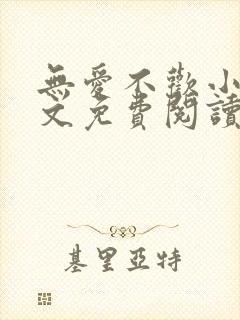 無愛不歡小
文免費閱讀
基里亞特